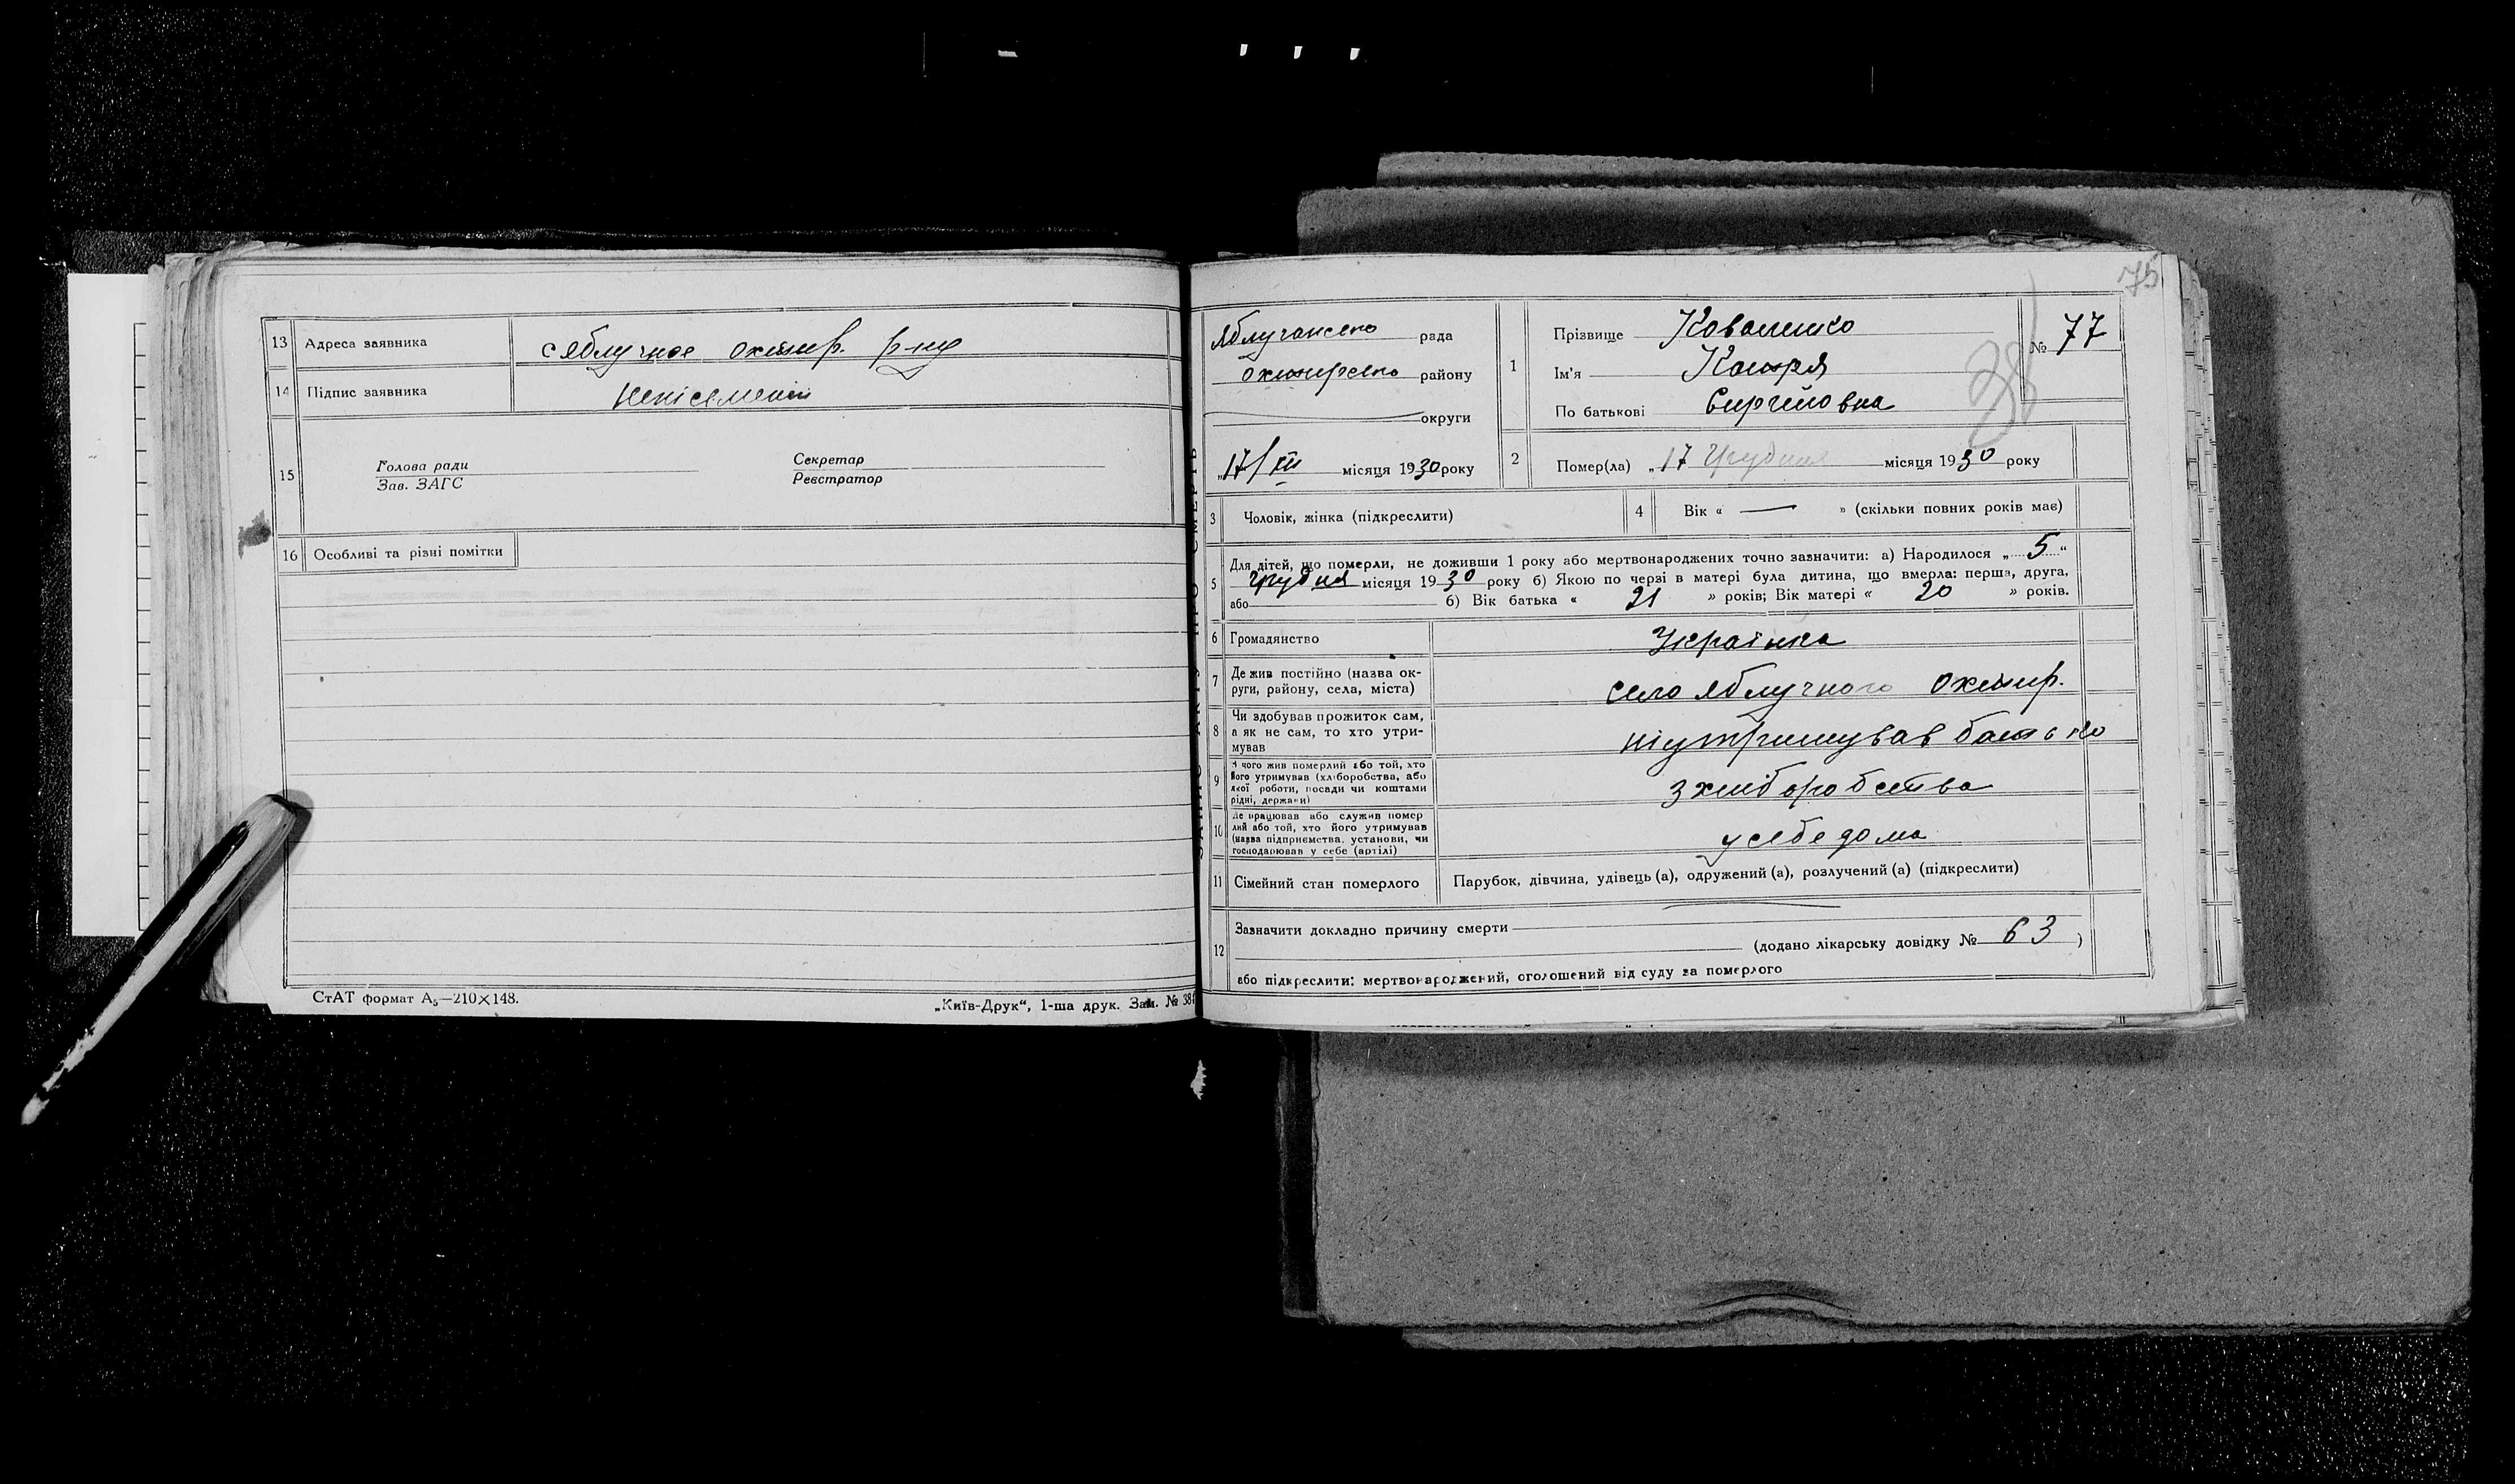 13 Адреса заявника с Яблучное Охтир. р-ну
14 Підпис заявника
15 Голова ради Секретар
Зав. ЗАГС Реєстратор
16 Особливі та різні помітки
СтАТ формат А5—210×148.
„Київ-Друк“, 1-ша друк. Зам. № 38
75
рада
району
округи
„17/XII місяця 1930 року
1 Прізвище Коваленко
Ім'я
По батькові
№ 77
38
2 Помер(ла) „17 Грудня місяця 1930 року
3 Чоловік, жінка (підкреслити)
4 Вік « — » (скільки повних років має)
5 Для дітей, що померли, не доживши 1 року або мертвонароджених точно зазначити: а) Народилося „5“
грудня місяця 1930 року б) Якою по черзі в матері була дитина, що вмерла: перша, друга,
або б) Вік батька « 21 » років; Вік матері « 20 » років.
6 Громадянство Українка
7 Де жив постійно (назва ок-
руги, району, села, міста) село Яблучного Охтир.
8 Чи здобував прожиток сам,
а як не сам, то хто утри-
мував підтримував батько
9 З чого жив померлий або той, хто
його утримував (хліборобства, або
якої роботи, посади чи коштами
рідні, держави) з хліборобства
10 Де працював або служив помер
лий або той, хто його утримував
(назва підприємства, установи, чи
господарював у себе (артілі) у себе дома
11 Сімейний стан померлого Парубок, дівчина, удівець (а), одружений (а), розлучений (а) (підкреслити)
12 Зазначити докладно причину смерти
(додано лікарську довідку № 63 )
або підкреслити: мертвонароджений, оголошений від суду за померлого